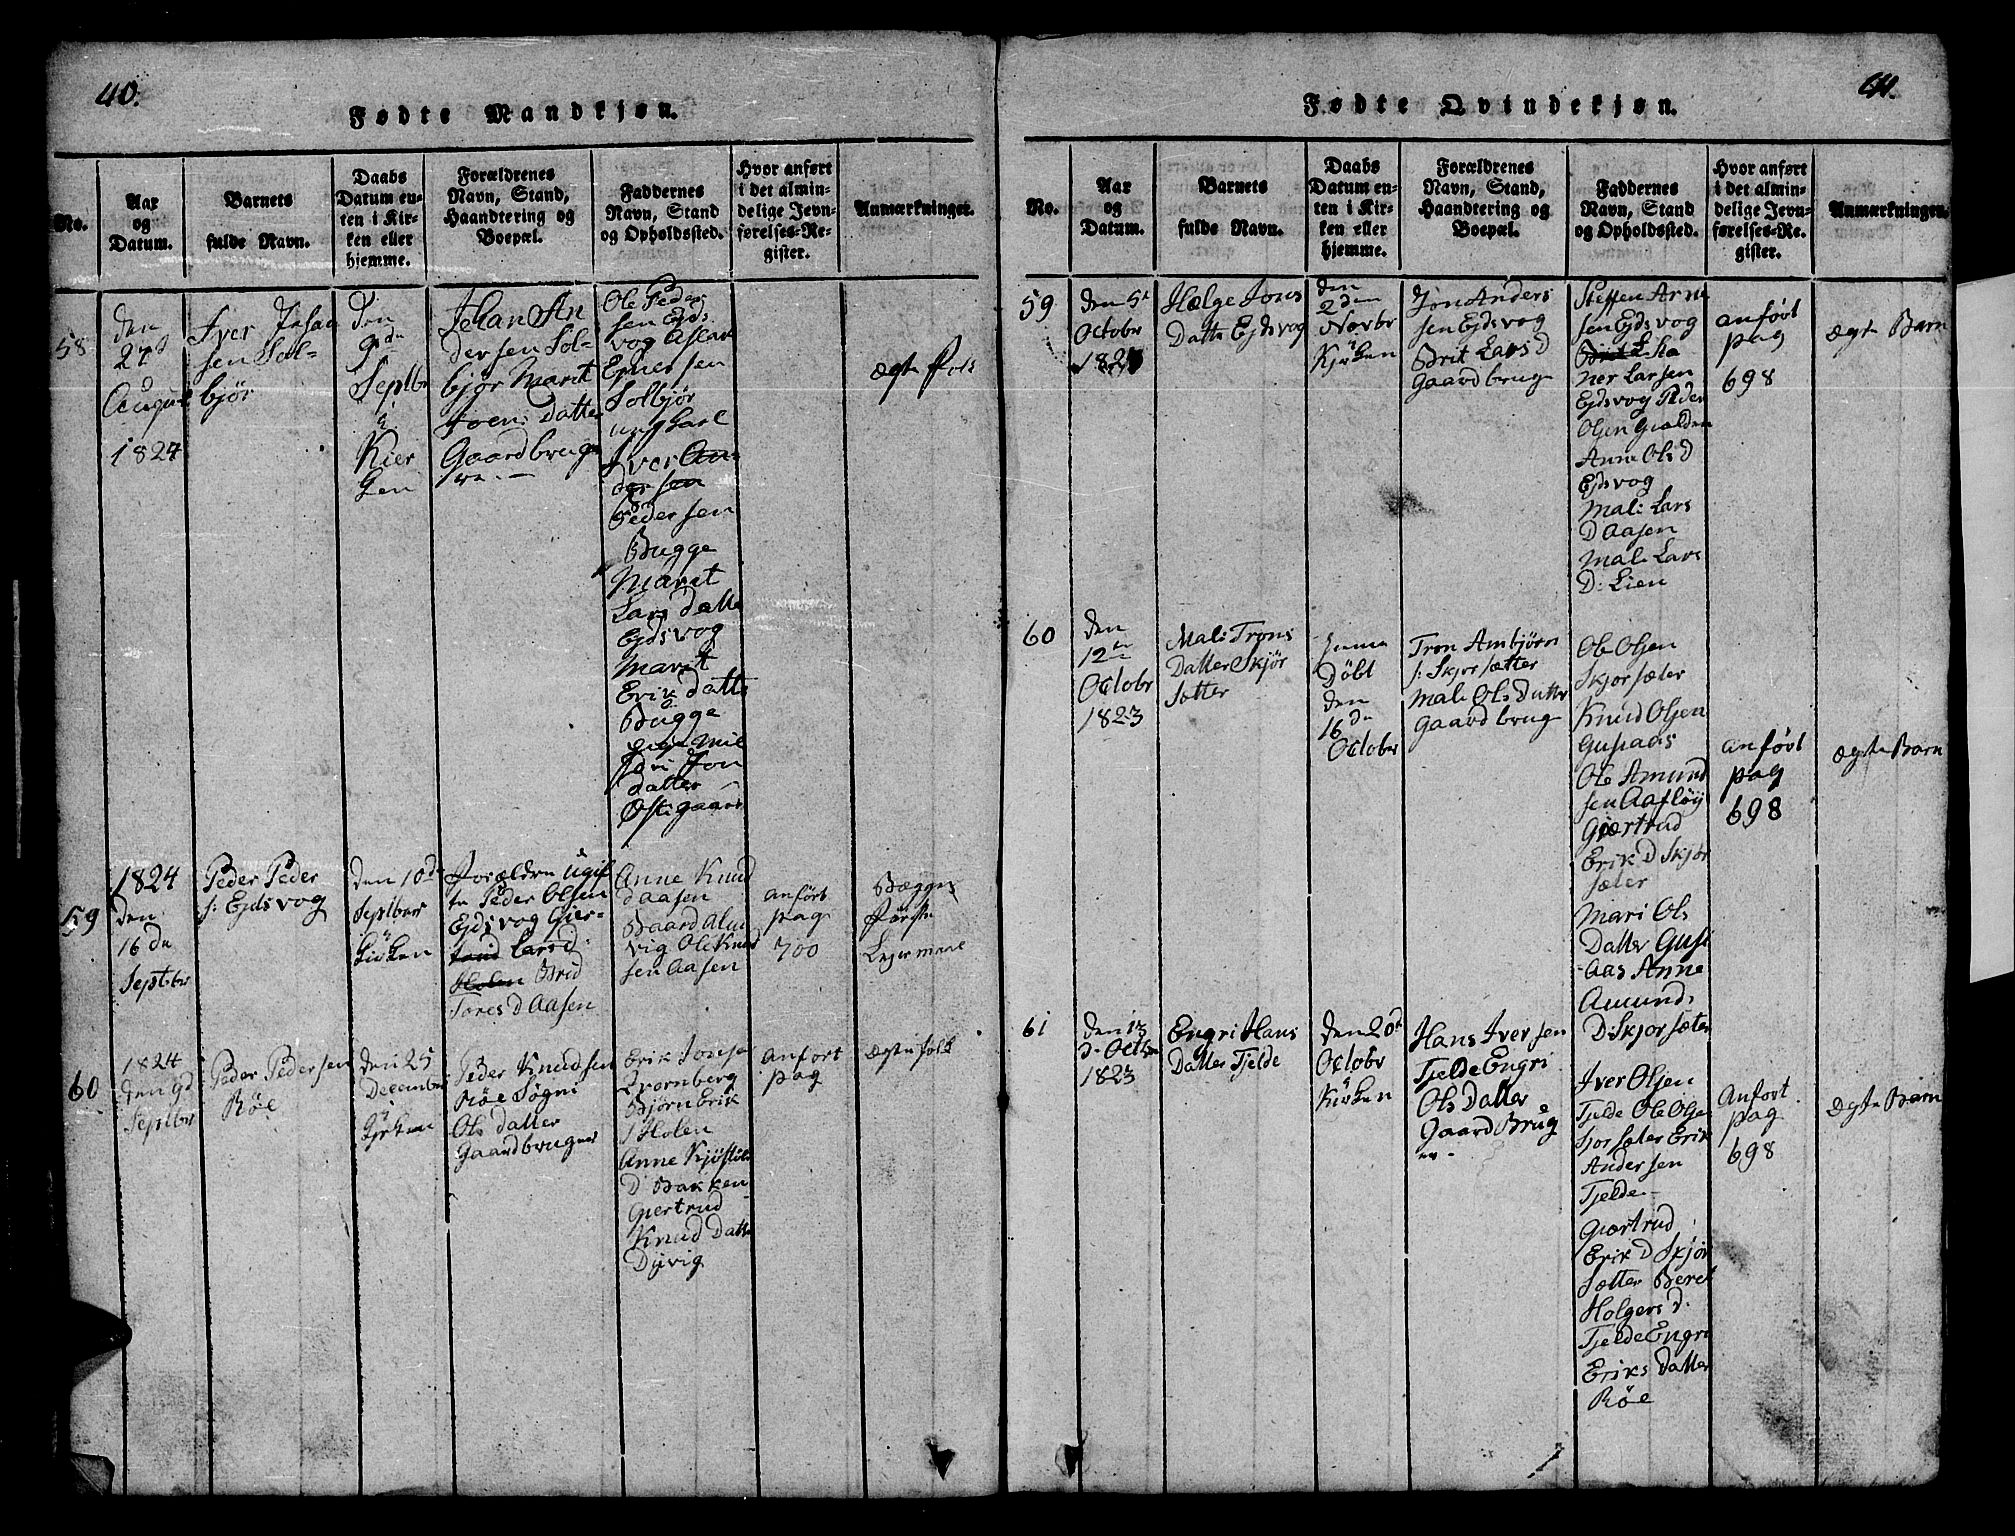 40.
Fødte Mandkjøn.
No.
Aar
og
Datum.
Barnets
fulde Navn.
Daabs
Datum en-
ten i Kir-
ken eller
hjemme.
Forældrenes
Navn, Stand,
Haandtering og
Boepæl.
Faddernes
Navn, Stand
og Opholdssted.
Hvor anført
i det almin-
delige Jevn-
førelses-Re-
gister.
Anmærkninger.
58
den
27
August
1824
Iver
sen Sol-
bjør
den
Septbr
i
Kier
Johan An
dersen Sol-
bjør Marit
Joens Datter
Gaardbruge
Ole Peder
sen Ejds
vog Aslak
Ejnersen
Solbjør
ungkarl
Iver An
dersen
Pedersen
Bugge
Marit
Lars Datte
Ejdsvog
Marit
Erik Datte
Bugge
pige
Jon
datter
Østigaard
ægte Fols
59
1824
den
16 de
Septbr
Peder Peder
s: Ejdsvog
den 10de
Septber
Kirken
Forældre Ugif
te Peder Olsen
Ejdsvog Gier-
trud Lars d.
Holen Brid
Tores D Aasen
Anne Knud
d Aasen
Baard Al
vig Ole Knud
sen Aasen
anført
pag
700
Begges
Første
Lejermaal
60
1824
den 9d
Septbr
Peder Pedersen
Røe
den 25
December
Peder Knudsen
Røe Søgni
Ols datter
Gaardbruger
Erik
Bjørn Erik
s Holen
Anne Kjøstels
D Bakken
Giertrud
Knud Datte
Dyvig
Anfort
pag
Ægte folk
41.
Fødte Qvindekjøn.
No.
Aar
og
Datum.
Barnets
fulde Navn.
Daabs
Datum en-
ten i Kir-
ken eller
hjemme.
Forældrenes
Navn, Stand,
Haandtering og
Boepæl.
Faddernes
Navn, Stand
og Opholdssted.
Hvor anført
i det almin-
delige Jevn-
førelses-Re-
gister.
Anmærkninger.
59
den 5t
Octobr
Hælge Jons
Datte Ejdsvog
den
2den
Novbr
Kjirken
Jon Anders
sen Ejdsvog
Brit Lars D
Gaardbrug
Steffen Arne
sen Ejdsvog
ner Larsen
Ejdsvog Peder
Olsen Gralden
Anne Ols D
Ejdsvog
Mali Lars
D Aasen
Mali Lars
D: Lien
anført
pag
698
ægte Barn
60
den
12te
Octobr
1823
Mali Trons
Datter Skjør
sætter
hjemme
Døbt
den
16de
October
Tron Ambjørn
s: Skjorsætter
Mali Ols Datter
Gaardbrug
Ole Olsen
Skjorsæter
Knud Olsen
Gusiaas
Ole Amund
sen Aafløy
Giertrud
Erik D Skjør
sæter
Mari Ols
Datter Gusi
aas Anne
Amunds
D: Skjorsæter
anført
pag
698
ægte Barn
61
den 13
d. Octbr
1823
Engri Hans
Datter Tjelde
den 20de
Octobr
Kirken
Hans Iversen
Tjelde Engri
Ols Datter
Gaard Brug
er.
Iver Olsen
Tjelde Ole Olse
Sjorsæter Erik
Andersen
Tjelde
Giærtrud
Erik D Skjør
sætter Beret
Holgers D.
Tjelde Engri
Eriks Datter
Røe
Anfort
pag
698
Ægte Barn